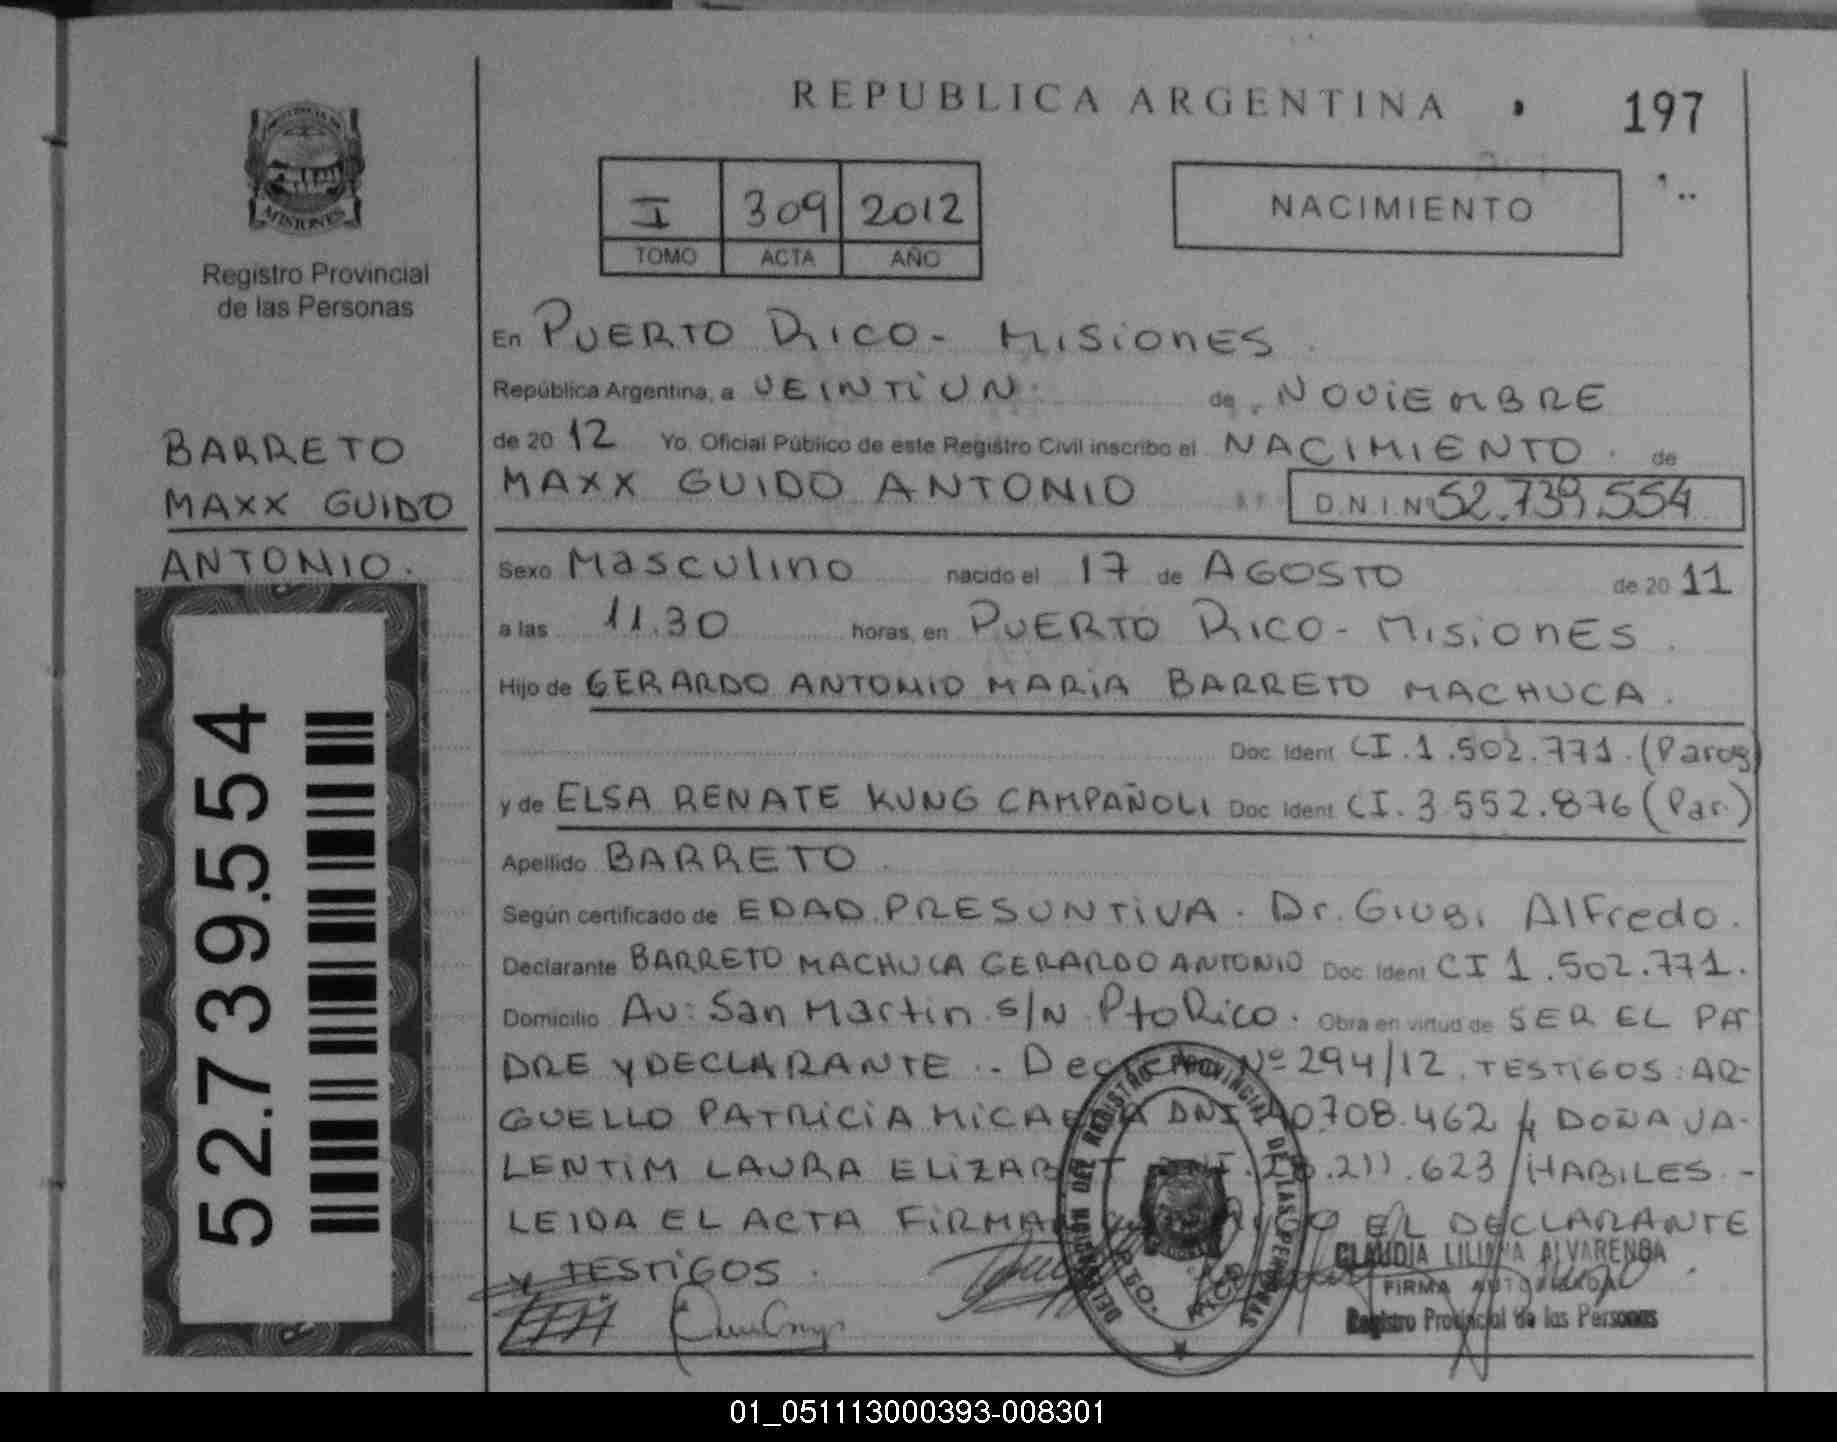 REPUBLICA ARGENTINA
197
MISIONES
Registro Provincial
de las Personas
I 309 2012
TOMO ACTA AÑO
NACIMIENTO
BARRETO
MAXX GUIDO
ANTONIO.
52.739.554
En PUERTO RICO - MISIONES
República Argentina, a VEINTIUN de NOVIEMBRE
de 20 12 Yo, Oficial Público de este Registro Civil inscribo el NACIMIENTO. de
MAXX GUIDO ANTONIO D.N.I. Nº 52.739.554
Sexo Masculino nacido el 17 de AGOSTO de 20 11
a las 11.30 horas, en PUERTO RICO - MISIONES.
Hijo de GERARDO ANTONIO MARIA BARRETO MACHUCA.
Doc. Ident. CI. 1.502.771. (Parag)
y de ELSA RENATE KUNG CAMPAÑOLI Doc. Ident. CI. 3.552.876 (Par.)
Apellido BARRETO.
Según certificado de EDAD PRESUNTIVA. Dr. GIUBI Alfredo.
Declarante BARRETO MACHUCA GERARDO ANTONIO Doc. Ident. CI 1.502.771.
Domicilio Av: San Martin s/N Pto Rico. Obra en virtud de SER EL PA
DRE Y DECLARANTE.- Nº 294/12. TESTIGOS: AR-
GUELLO PATRICIA MICAELA DNI 40.708.462 y DOÑA VA-
LENTIM LAURA .623 HABILES.-
LEIDA EL ACTA EL DECLARANTE
y TESTIGOS.
DELEGACIÓN DEL REGISTRO PROVINCIAL DE LAS PERSONAS
PTO. RICO
CLAUDIA LILIANA ALVARENGA
FIRMA AUTORIZADA
Registro Provincial de las Personas
01_051113000393-008301